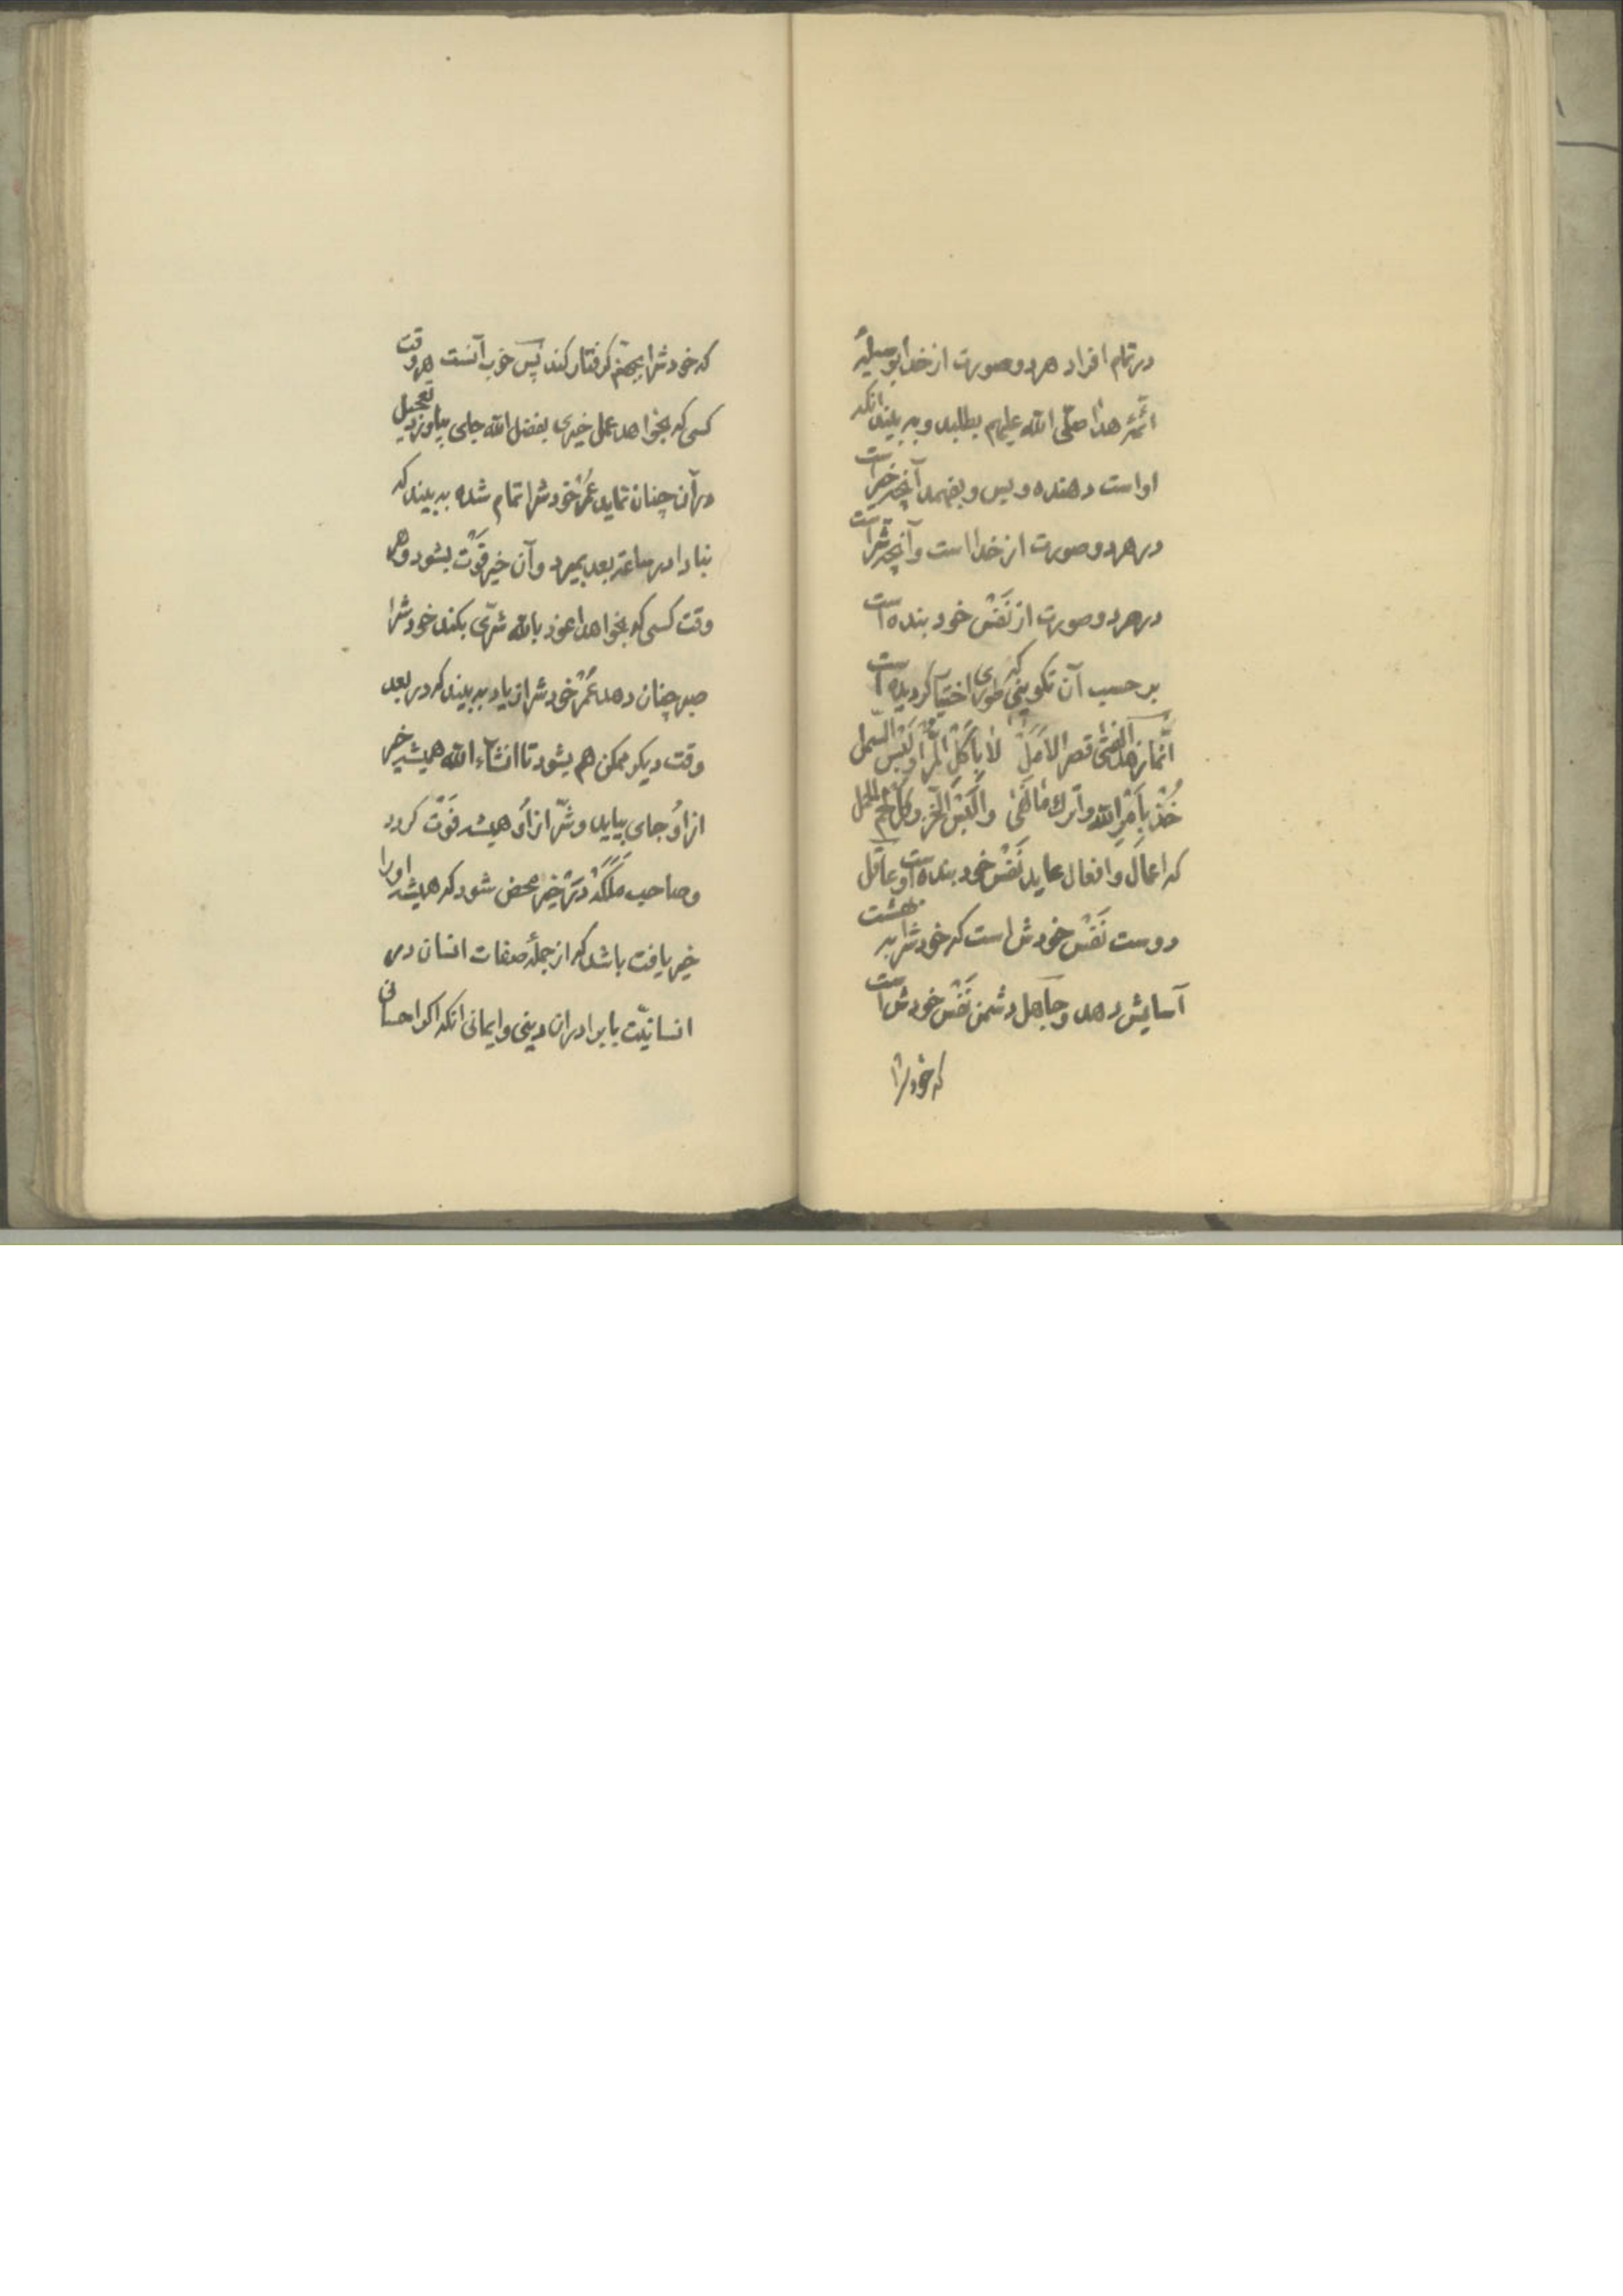 در تمام افراد هر دو صورت از خدا بوسیلهٔ
ائمّهٔ هدا صلّی الله علیهم بطلبد و به بیند آنکه
او است دهنده و بس و بفهمد آنچه خیر است
در هر دو صورت از خدا است و آنچه شرّ است
در هر دو صورت از نَفْس خود بنده است
بر حسب آن تکوینی که طوری اختیار کردیده است
انّما زهد الفتی قصر الاَمَل لا باَکْل المُرّ او لَبْس السمل
خُذْ بِاَمْرِ الله و اترك ما نَهی و الْبَس الخَز و کل لحم الحمل
که اعمال و افعال عاید نَفْس خود بنده است و عاقل
دوست نَفْس خودش است که خودش را به بهشت
آسایش دهد و جاهل دشمن نَفْس خودش است
که خود را
که خودش را بجهنّم کرفتار کند پس خوب آنست هر وقت
کسی که بخواهد عمل خیری بفضل الله جای بیاورد تعجیل
در آن چنان نماید عُمْر خودش را تمام شده به بیند که
مبادا در ساعت بعد بمیرد و آن خیر فَوْت بشود و هر
وقت کسی که بخواهد اعوذ بالله شرّی بکند خودش را
صبر چنان دهد عُمْر خودش را زیاد به بیند که در بعد
وقت دیکر ممکن هم بشود تا انشآء الله همیشه خیر
از اُو جای بیاید و شرّ از اُو همیشه فَوْت کردد
و صاحب مَلَکَهٔ خیر محض شود که همیشه او را
خیر یافت باشد که از جملهٔ صفات انسان در
انسانیّت با برادران دینی و ایمانی آنکه اکر احسانی